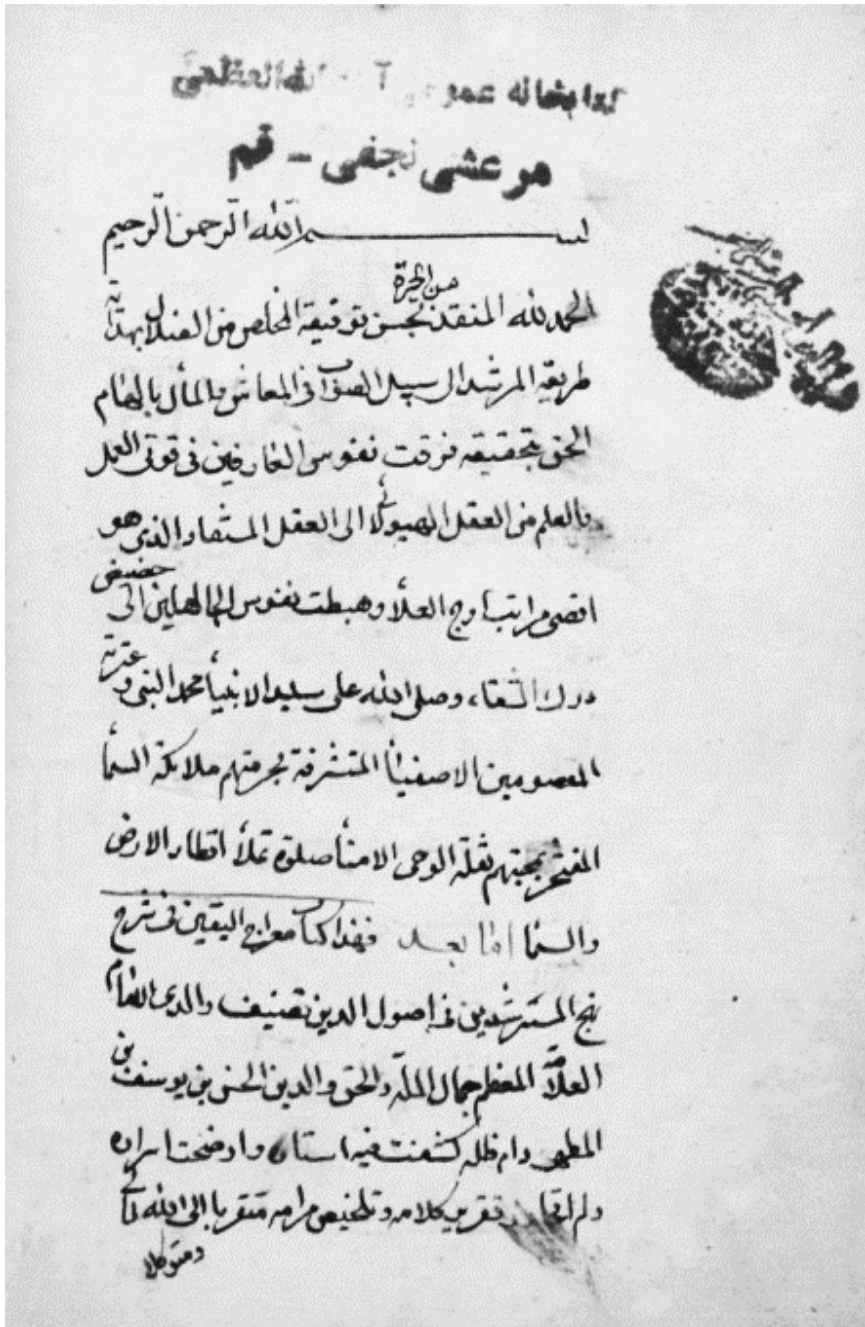 كتابخانه عمومی آیت الله العظمی
مرعشی نجفی - قم
بسم الله الرحمن الرحیم
من الحیرة
الحمد لله المنقذ بحسن توفیقه المخلص من الضلال بهدایة
طریقه المرشد الی سبیل الصواب فی المعاش والمآل بالهام
الحق بتحقیقه فرقت نفوس العارفین فی قوتی العمل
والعلم من العقل الهیولانی الی العقل المستفاد الذی هو
اقصی مراتب اوج العلاء وهبطت نفوس الجاهلین الی حضیض
درک الشقاء، وصلی الله علی سید الانبیاء محمد النبی وعترته
المعصومین الاصفیاء المتشرفة بحرمتهم ملائکة السماء
المفتخر بمحبتهم نقلة الوحی الامناء صلوة تملأ اقطار الارض
والسماء اما بعد فهذا کتاب معراج الیقین فی شرح
نهج المسترشدین فی اصول الدین تصنیف والدی الامام
العلامة المعظم جمال الملة والحق والدین الحسن بن یوسف بن
المطهر دام ظله کشفت فیه استاره واوضحت اسراره
ولم اتجاوز تقریر کلامه وتلخیص مرامه متقربا الی الله تعالی
ومتوکلا